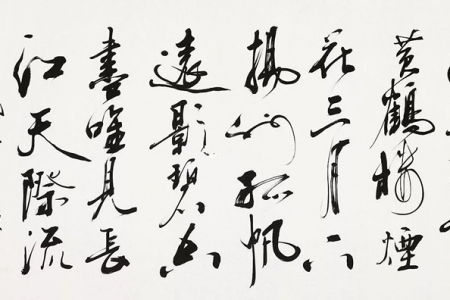 黄鹤楼煙
花三月下
揚州孤帆
遠影碧空
盡唯見長
江天際流